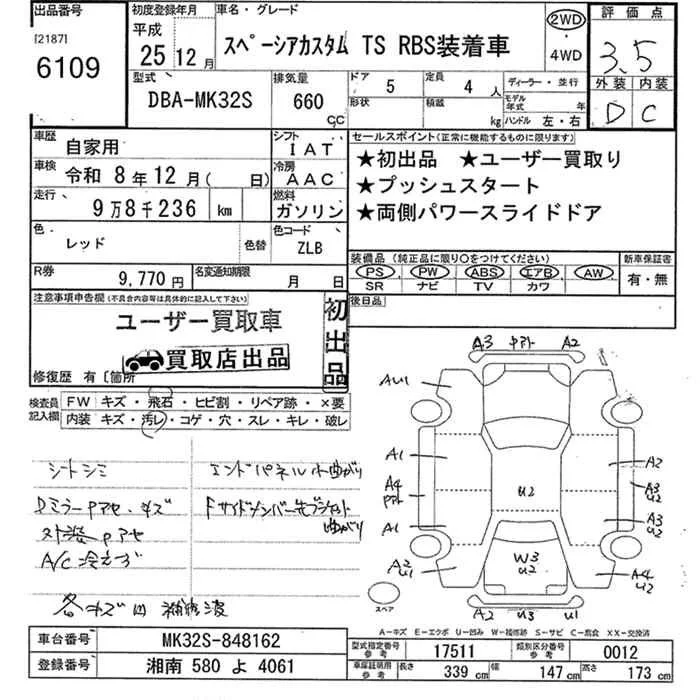 出品番号
[2187]
6109
初度登録年月
平成
25 12月
車名・グレード
スペーシアカスタム TS RBS装着車
2WD
・
4WD
評価点
3.5
外装 内装
D C
型式
DBA-MK32S
排気量
660
cc
ドア 5
定員 4 人
形状
積載 kg
ディーラー・並行
モデル年式 年
ハンドル 左・右
車歴 自家用
シフト IAT
車検 令和 8年 12月( 日)
冷房 AAC
走行 9万8千236 km
燃料 ガソリン
色 レッド
色替
色コード ZLB
R券 9,770円
名変通知期限 月 日
セールスポイント(正常に機能するものに限ります)
★初出品 ★ユーザー買取り
★プッシュスタート
★両側パワースライドドア
装備品(純正品に限り○をつけてください)
PS PW ABS エアB AW
SR ナビ TV カワ
新車保証書
有・無
後日品
注意事項申告欄(不具合内容等は具体的に記入して下さい)
ユーザー買取車
買取店出品
初出品
修復歴 有〔箇所
検査員記入欄
FW キズ・飛石・ヒビ割・リペア跡・×要
内装 キズ・汚レ・コゲ・穴・スレ・キレ・破レ
シートシミ
エンドパネル小曲がり
DミラーPアセ・キズ
外装Pアセ
曲がり
A/C冷えず
各キズ凹
A3 A2
AU1
A1 A2
A4 A3 U2
U2
A1 A3 U2
A2 U1 W3 U2 A4 U2
スペア
A2 U3 U1
A-キズ E-エクボ U-凹み W-補修跡 S-サビ C-腐食 XX-交換済
車台番号 MK32S-848162
登録番号 湘南 580 よ 4061
型式指定番号 参考 17511
類別区分番号 参考 0012
車庫証明用 参考
長さ 339 cm 幅 147 cm 高さ 173 cm